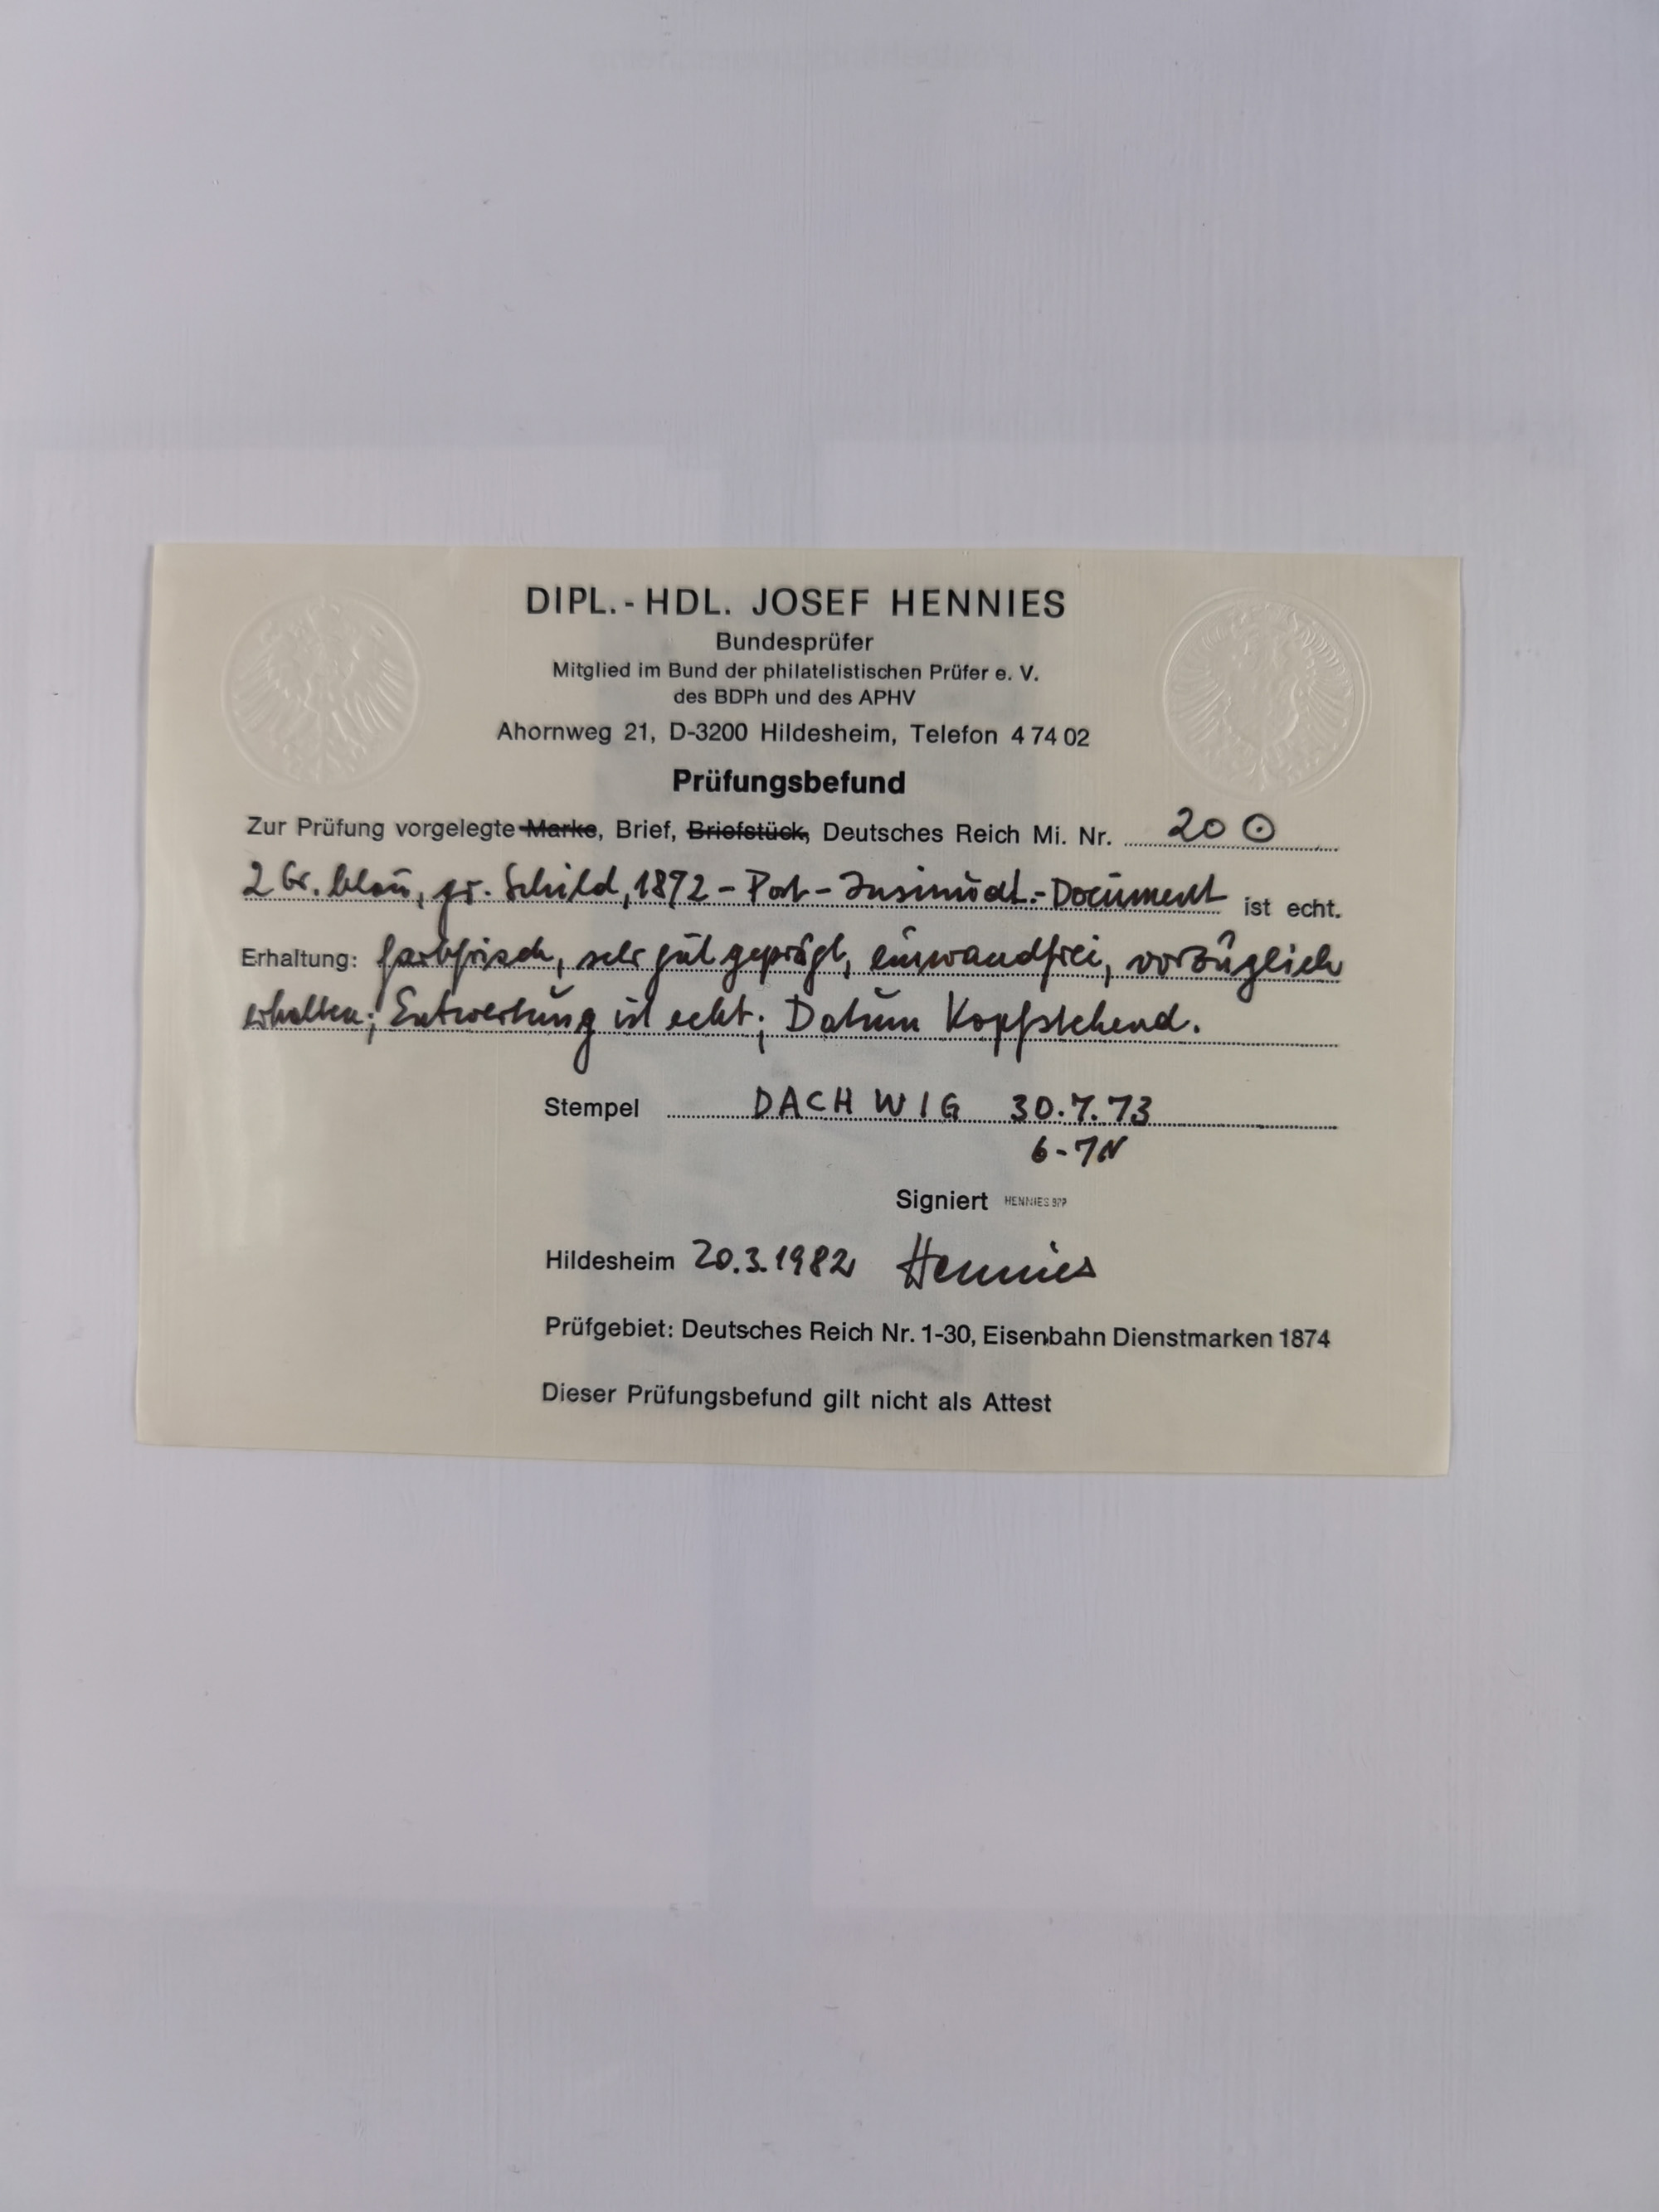 DIPL.-HDL. JOSEF HENNIES
Bundesprüfer
Mitglied im Bund der philatelistischen Prüfer e. V.
des BDPh und des APHV
Ahornweg 21, D-3200 Hildesheim, Telefon 4 74 02
Prüfungsbefund
Zur Prüfung vorgelegte Marke, Brief, Briefstück, Deutsches Reich Mi. Nr. 20 ⊙
2 Gr. blau, gr. Schild, 1872 - Post-Insinuat.-Document ist echt.
Erhaltung: farbfrisch, sehr gut geprägt, einwandfrei, vorzüglich
erhalten; Entwertung ist echt; Datum Kopfstehend.
Stempel DACHWIG 30.7.73
6-7N
Signiert HENNIES BPP
Hildesheim 20.3.1982 Hennies
Prüfgebiet: Deutsches Reich Nr. 1-30, Eisenbahn Dienstmarken 1874
Dieser Prüfungsbefund gilt nicht als Attest